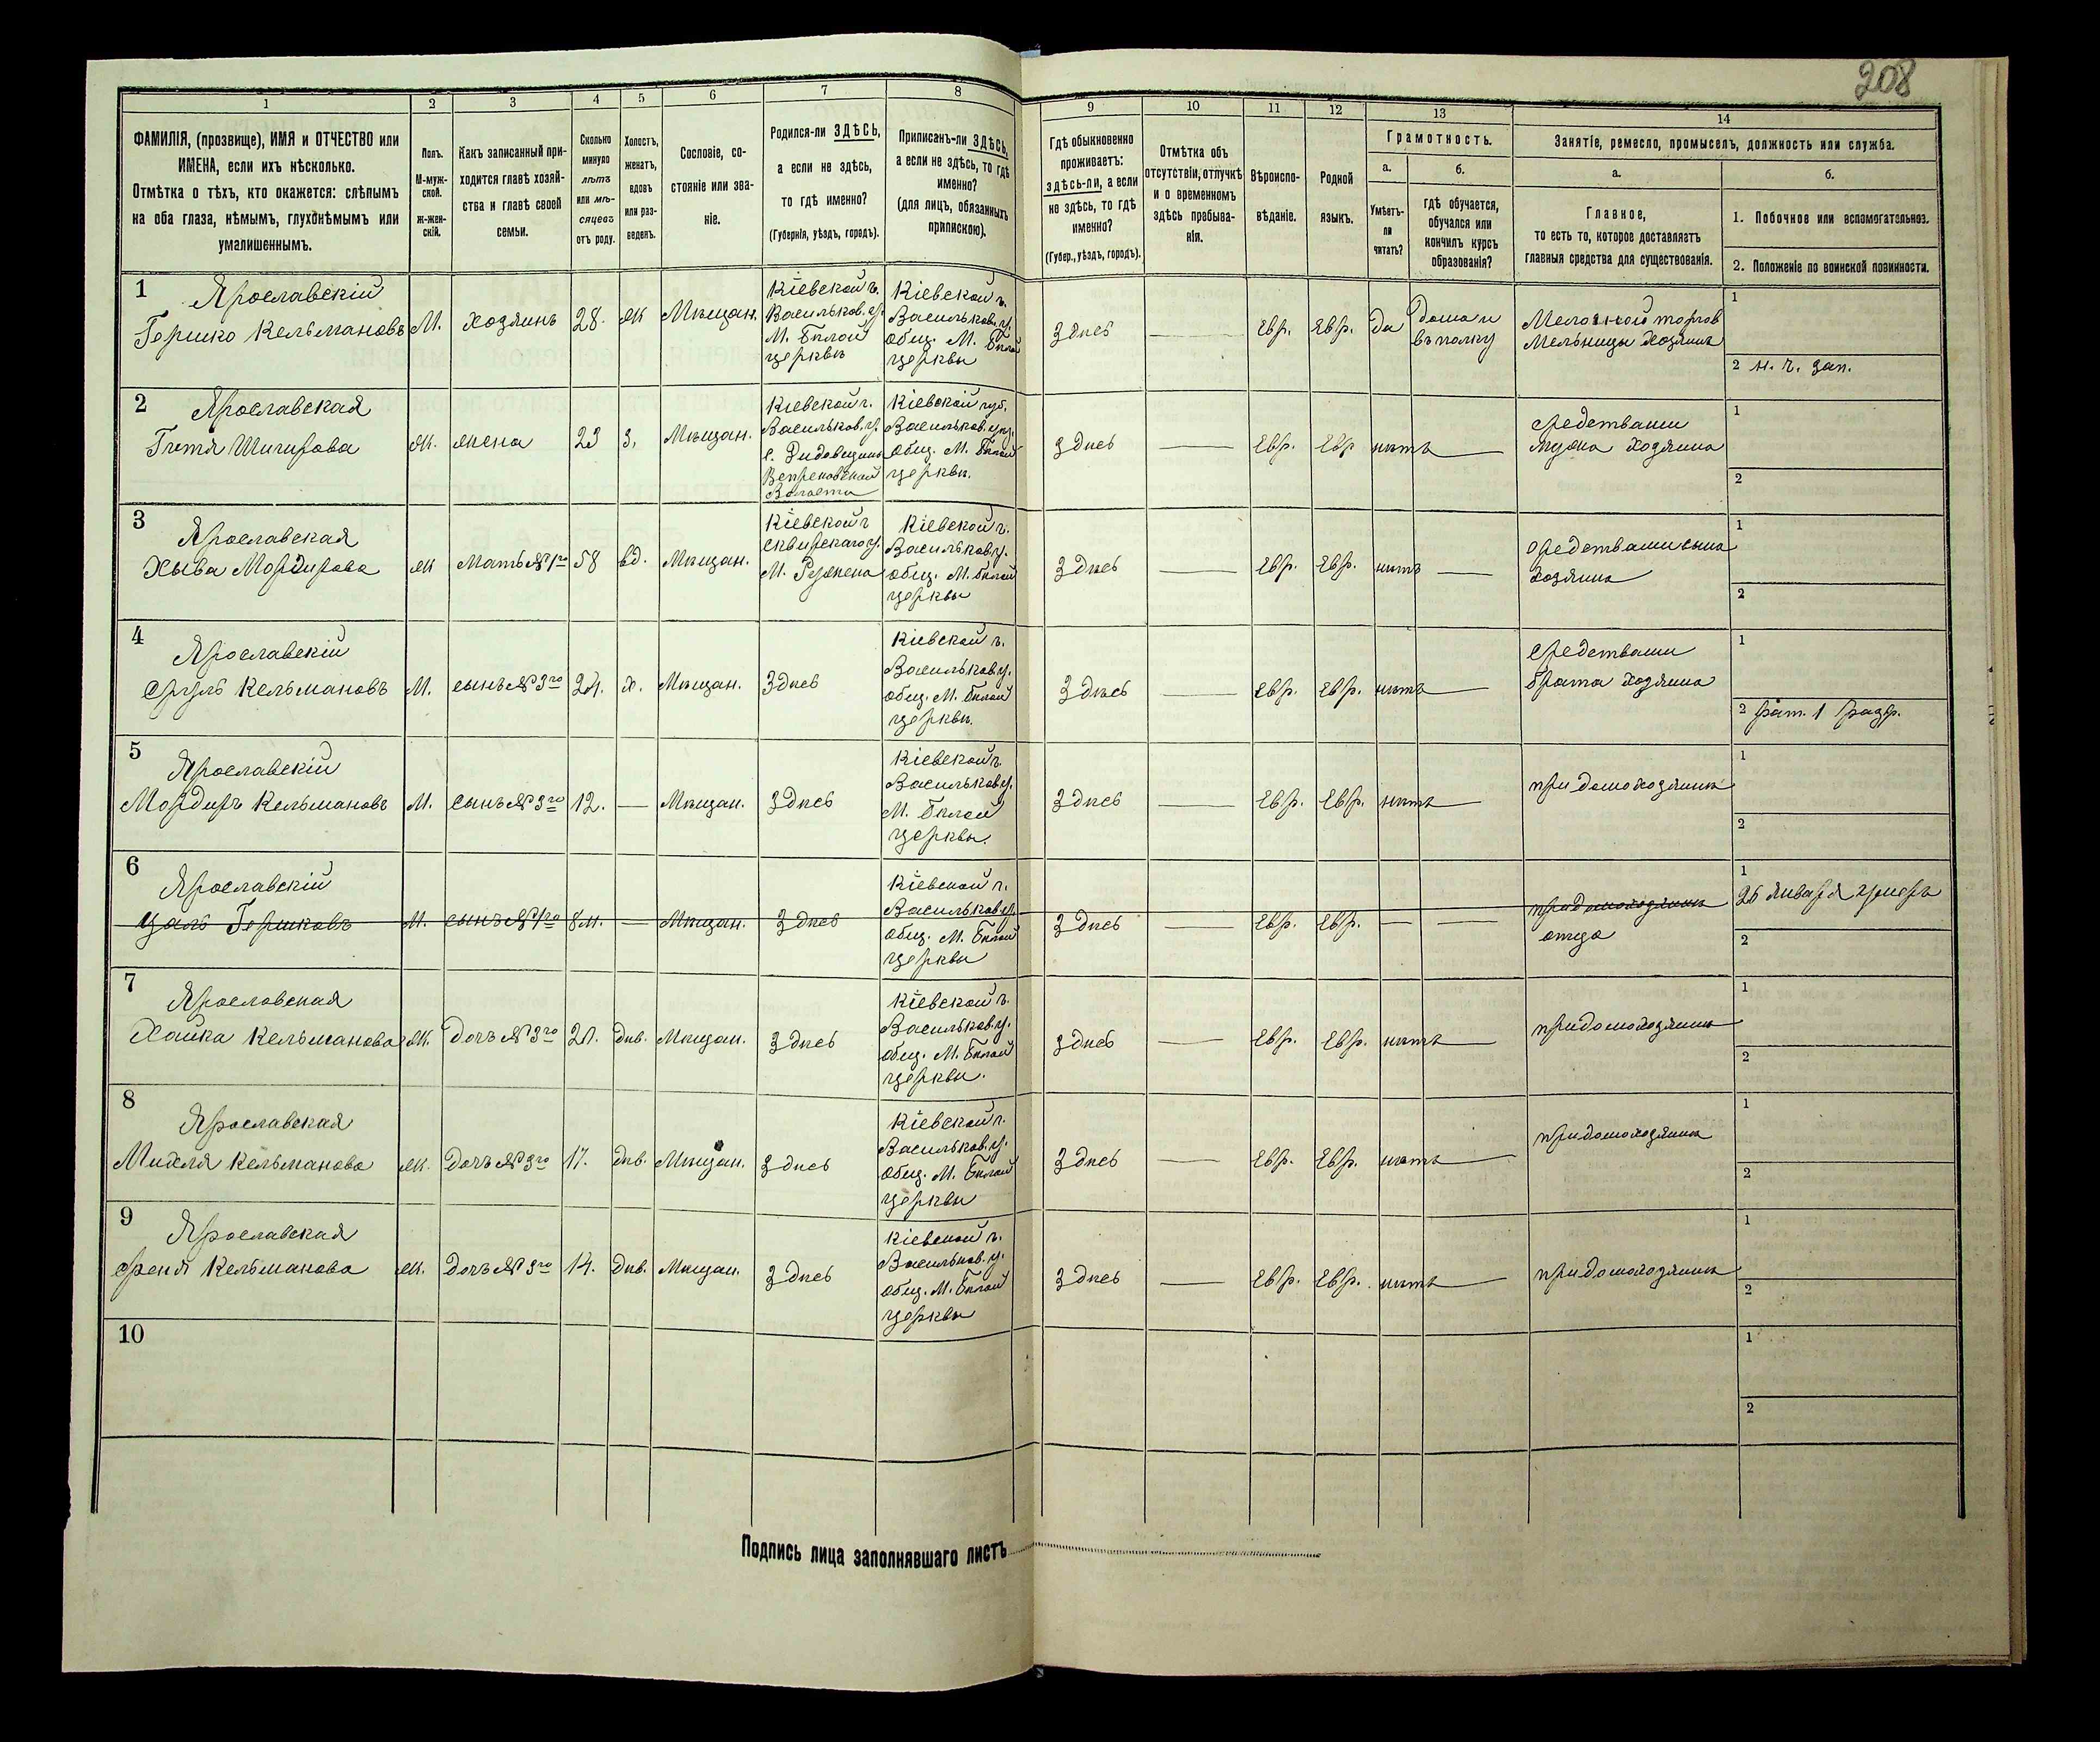 208
1
2
3
4
5
6
7
8
9
10
11
12
13
14
ФАМИЛІЯ, (прозвище), ИМЯ и ОТЧЕСТВО или
ИМЕНА, если ихъ нѣсколько.
Отмѣтка о тѣхъ, кто окажется: слѣпымъ
на оба глаза, нѣмымъ, глухонѣмымъ или
умалишеннымъ.
Полъ.
М-муж-
ской.
Ж-жен-
скій.
Какъ записанный при-
ходится главѣ хозяй-
ства и главѣ своей
семьи.
Сколько
минуло
лѣтъ
или мѣ-
сяцевъ
отъ роду.
Холостъ,
женатъ,
вдовъ
или раз-
веденъ.
Сословіе, со-
стояніе или зва-
ніе.
Родился-ли ЗДѢСЬ,
а если не здѣсь,
то гдѣ именно?
(Губернія, уѣздъ, городъ).
Приписанъ-ли ЗДѢСЬ,
а если не здѣсь, то гдѣ
именно?
(для лицъ, обязанныхъ
припискою).
Гдѣ обыкновенно
проживаетъ:
здѣсь-ли, а если
не здѣсь, то гдѣ
именно?
(Губер., уѣздъ, городъ).
Отмѣтка объ
отсутствіи, отлучкѣ
и о временномъ
здѣсь пребыва-
ніи.
Вѣроиспо-
вѣданіе.
Родной
языкъ.
Грамотность.
а.
Умѣетъ-
ли
читать?
б.
гдѣ обучается,
обучался или
кончилъ курсъ
образованія?
Занятіе, ремесло, промыселъ, должность или служба.
а.
Главное,
то есть то, которое доставляетъ
главныя средства для существованія.
б.
1. Побочное или вспомогательное.
2. Положеніе по воинской повинности.
1
Ярославскій
Гершко Кельмановъ
М.
хозяинъ
28.
ж
Мѣщан.
Кіевской г.
Васильков. у.
М. Бѣлой
церквѣ
Кіевской г.
Васильков. у.
общ. М. Бѣлой
церкви
Здѣсь
Евр.
Евр.
да
Дома и
въ полку
Мелочной торгов
Мельницы хозяинъ
1
2 н. ч. зап.
2
Ярославская
Гитя Шигирова
ж.
жена
23
з.
Мѣщан.
Кіевской г.
Васильков. у.
Вепренковской
Волости
Кіевской губ.
Васильков. у.
общ. М. Бѣлой
церкви.
Здѣсь
Евр.
Евр
нѣтъ
средствами
мужа хозяина
1
2
3
Ярославская
Хыва Мордирова
ж
Мать №1го
58
вд.
Мѣщан.
Кіевской г
Сквирскаго у.
М. Ружена
Кіевской г.
Васильков у.
общ. М. Бѣлой
церквы
Здѣсь
Евр.
Евр.
нѣтъ
средствами сына
хозяина
1
2
4
Ярославскій
Сруль Кельмановъ
М.
сынъ №3го
21.
х.
Мѣщан.
Здѣсь
Кіевской г.
Васильков у.
общ. М. Бѣлой
церкви.
Здѣсь
Евр.
Евр.
нѣтъ
Средствами
брата хозяина
1
2 рат. 1 разр.
5
Ярославскій
Мордиръ Кельмановъ
М.
сынъ №3го
12.
Мѣщан.
Здѣсь
Кіевской г.
Васильков у.
М. Бѣлой
церквы.
Здѣсь
Евр.
Евр.
нѣтъ
при домохозяинѣ
1
2
6
Ярославскій
Цаль Гершковъ
М.
сынъ №1го
8 м.
Мѣщан.
Здѣсь
Кіевской г.
Васильков у.
общ. М. Бѣлой
церкви
Здѣсь
Евр.
Евр.
при домохозяинѣ
отца
1
26 января умеръ
2
7
Ярославская
Хайка Кельманова
ж.
Дочь №3го
20.
дѣв.
Мѣщан.
Здѣсь
Кіевской г.
Васильков. у.
общ. М. Бѣлой
церкви.
Здѣсь
Евр.
Евр.
нѣтъ
при домохозяинѣ
1
2
8
Ярославская
Михля Кельманова
ж.
Дочь №3го
17.
дѣв.
Мѣщан.
Здѣсь
Кіевской г.
Васильков. у.
общ. М. Бѣлой
церкви
Здѣсь
Евр.
Евр.
нѣтъ
при домохозяинѣ
1
2
9
Ярославская
Френя Кельманова
ж.
Дочь №3го
14.
дѣв.
Мѣщан.
Здѣсь
Кіевской г.
Васильков. у.
общ. М. Бѣлой
церквы
Здѣсь
Евр.
Евр.
нѣтъ
при домохозяинѣ
1
2
10
1
2
Подпись лица заполнявшаго листъ